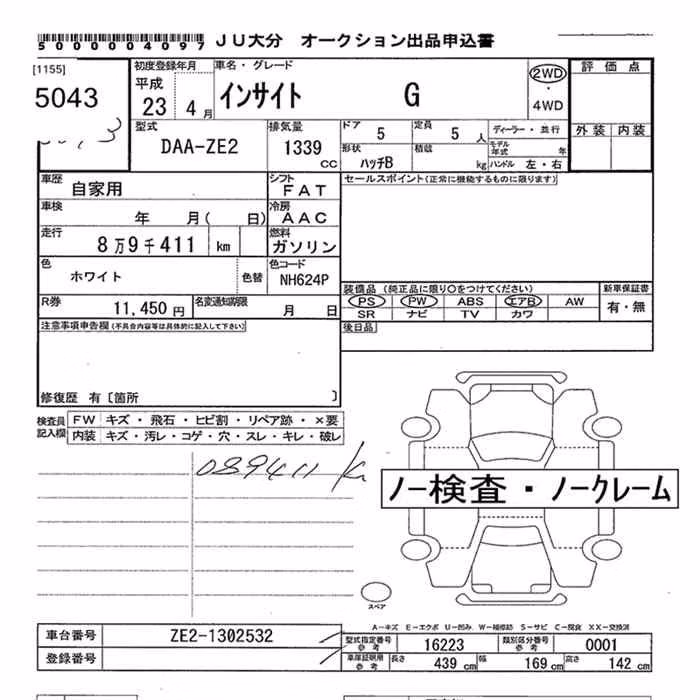 5000004097 JU大分 オークション出品申込書
[1155] 初度登録年月 車名・グレード 2WD 評価点
5043 平成 23 4月 インサイト G ・ 4WD
型式 DAA-ZE2 排気量 1339 cc ドア 5 定員 5 人 ディーラー・並行 外装 内装
形状 ハッチB 積載 kg モデル年式 年 ハンドル 左・右
車歴 自家用 シフト FAT セールスポイント(正常に機能するものに限ります)
車検 年 月( 日) 冷房 AAC
走行 8万9千411 km 燃料 ガソリン
色 ホワイト 色替 色コード NH624P
装備品(純正品に限り○をつけてください) 新車保証書
R券 11,450円 名変通知期限 月 日 PS PW ABS エアB AW 有・無
SR ナビ TV カワ
注意事項申告欄(不具合内容等は具体的に記入して下さい) 後日品
修復歴 有〔箇所 〕
検査員記入欄 FW キズ・飛石・ヒビ割・リペア跡・×要
内装 キズ・汚レ・コゲ・穴・スレ・キレ・破レ
089411 K
ノー検査・ノークレーム
スペア
A-キズ E-エクボ U-凹み W-補修跡 S-サビ C-腐食 XX-交換済
車台番号 ZE2-1302532 型式指定番号 参考 16223 類別区分番号 参考 0001
登録番号 車庫証明用 参考 長さ 439 cm 幅 169 cm 高さ 142 cm